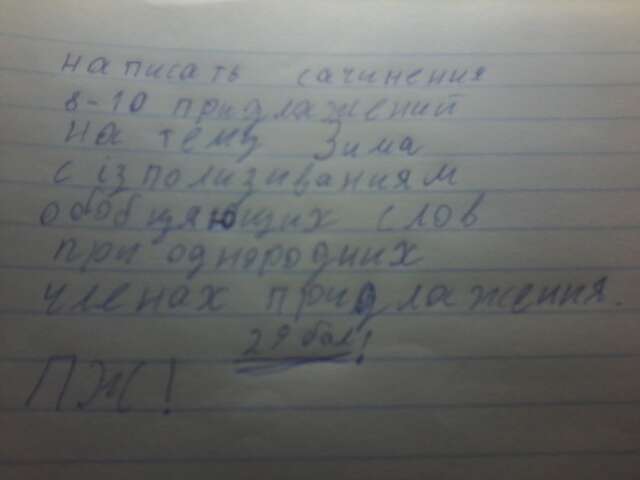 написать сачинения
8-10 придлажений
на тему Зима
с ізполизиваниям
обобщяющих слов
при однородних
членах придлажения.
29 бал!
ПЖ!